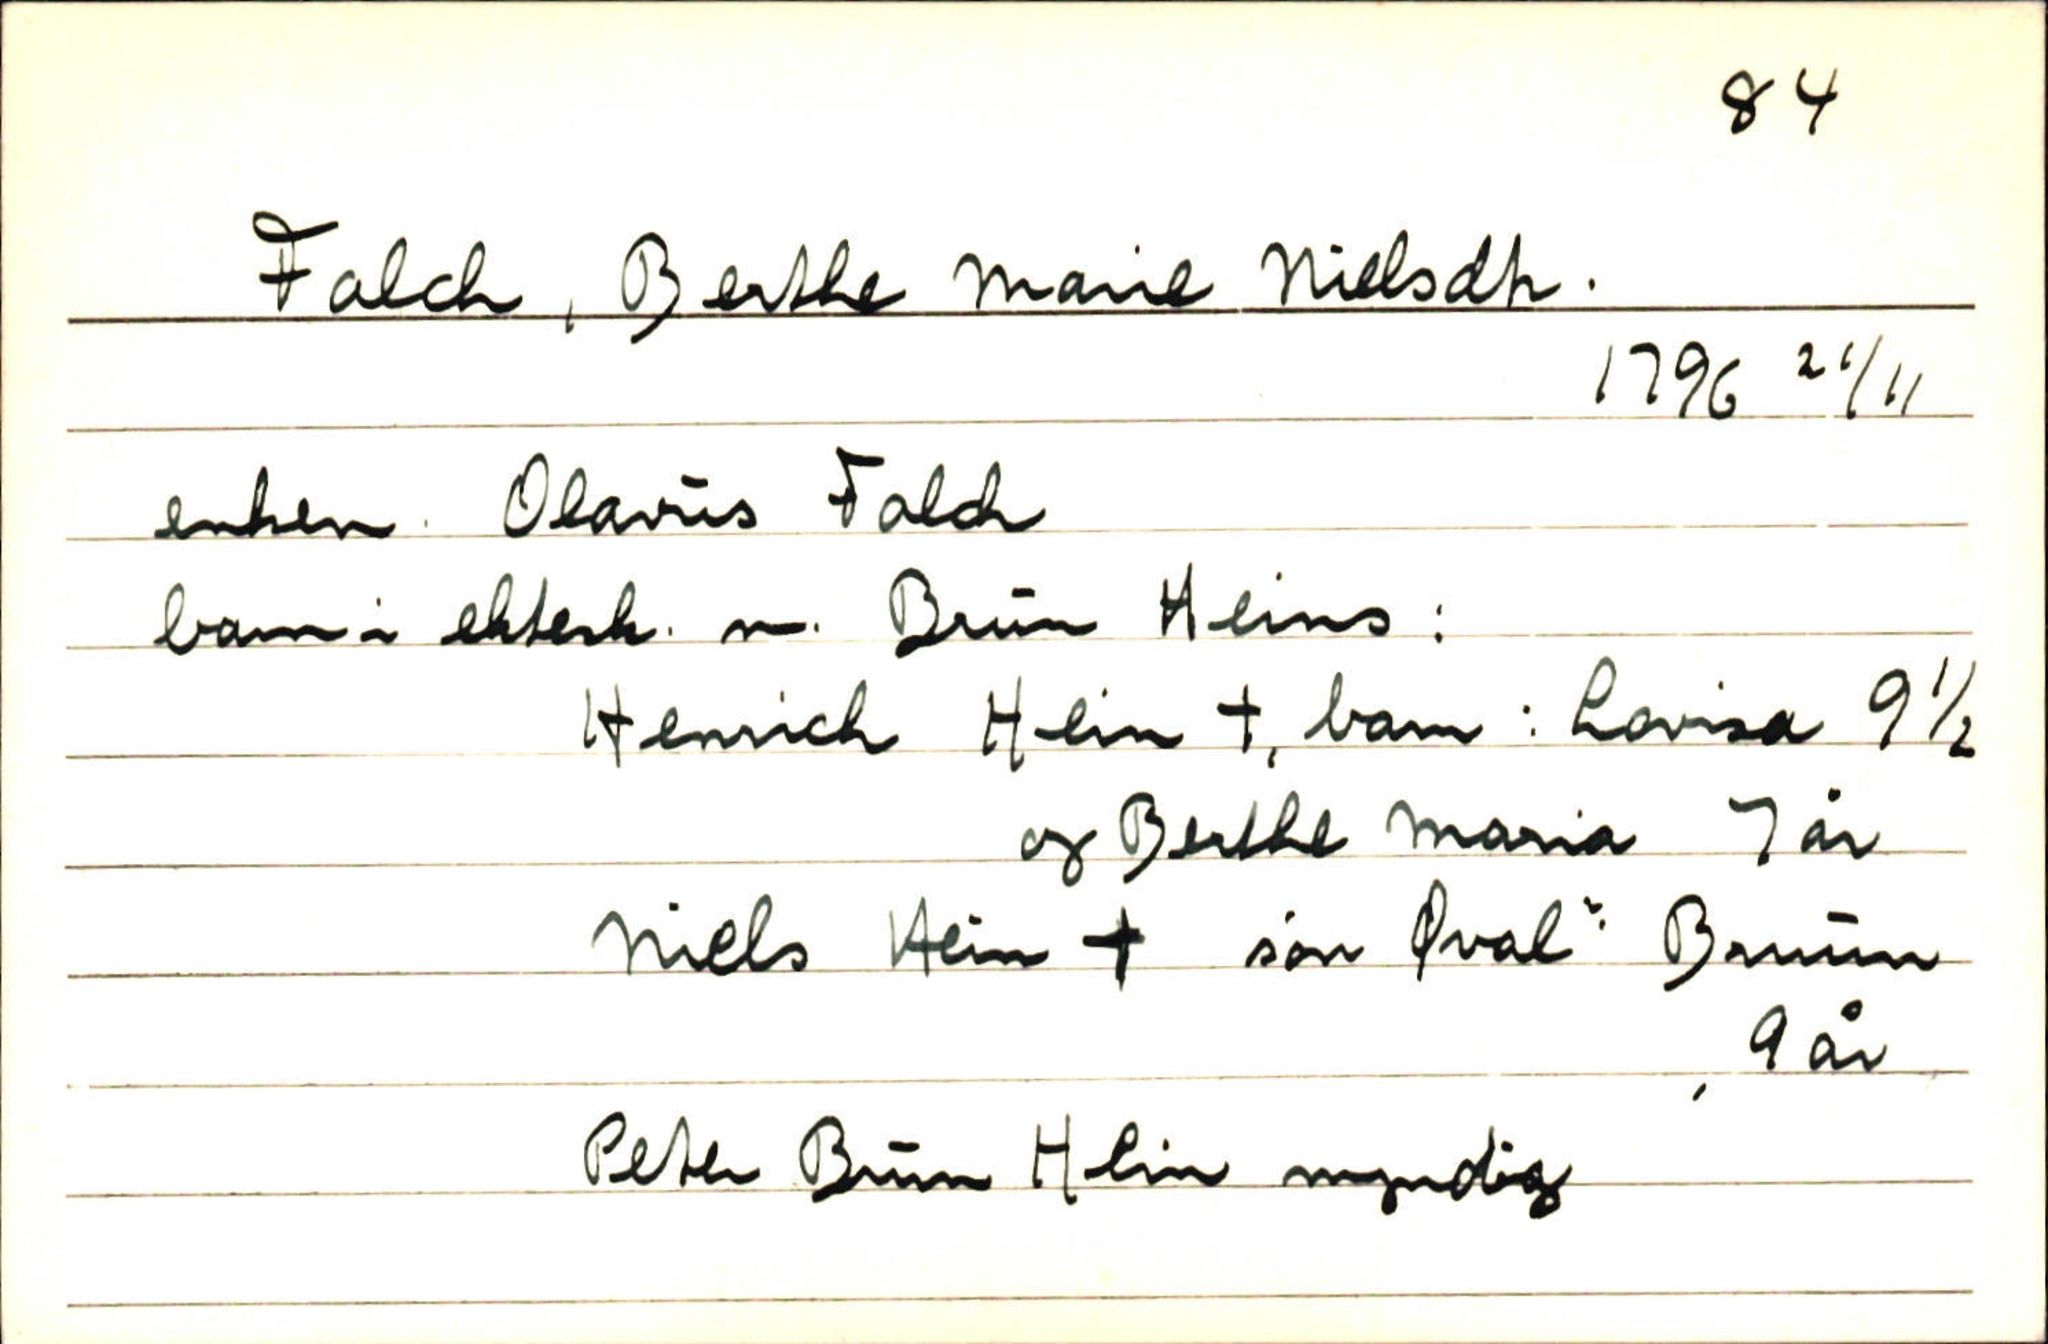 84
Falch, Berthe Marie Nielsdtr.
1796 21/11
enken. Olavus Falch
barn i ektesk. m. Brun Heins:
Henrich Hein †, barn: Lovisa 9 1/2
og Berthe Maria 7 år
Niels Hein † søn Øval? Bruun
, 9 år
Peter Brun Hein myndig